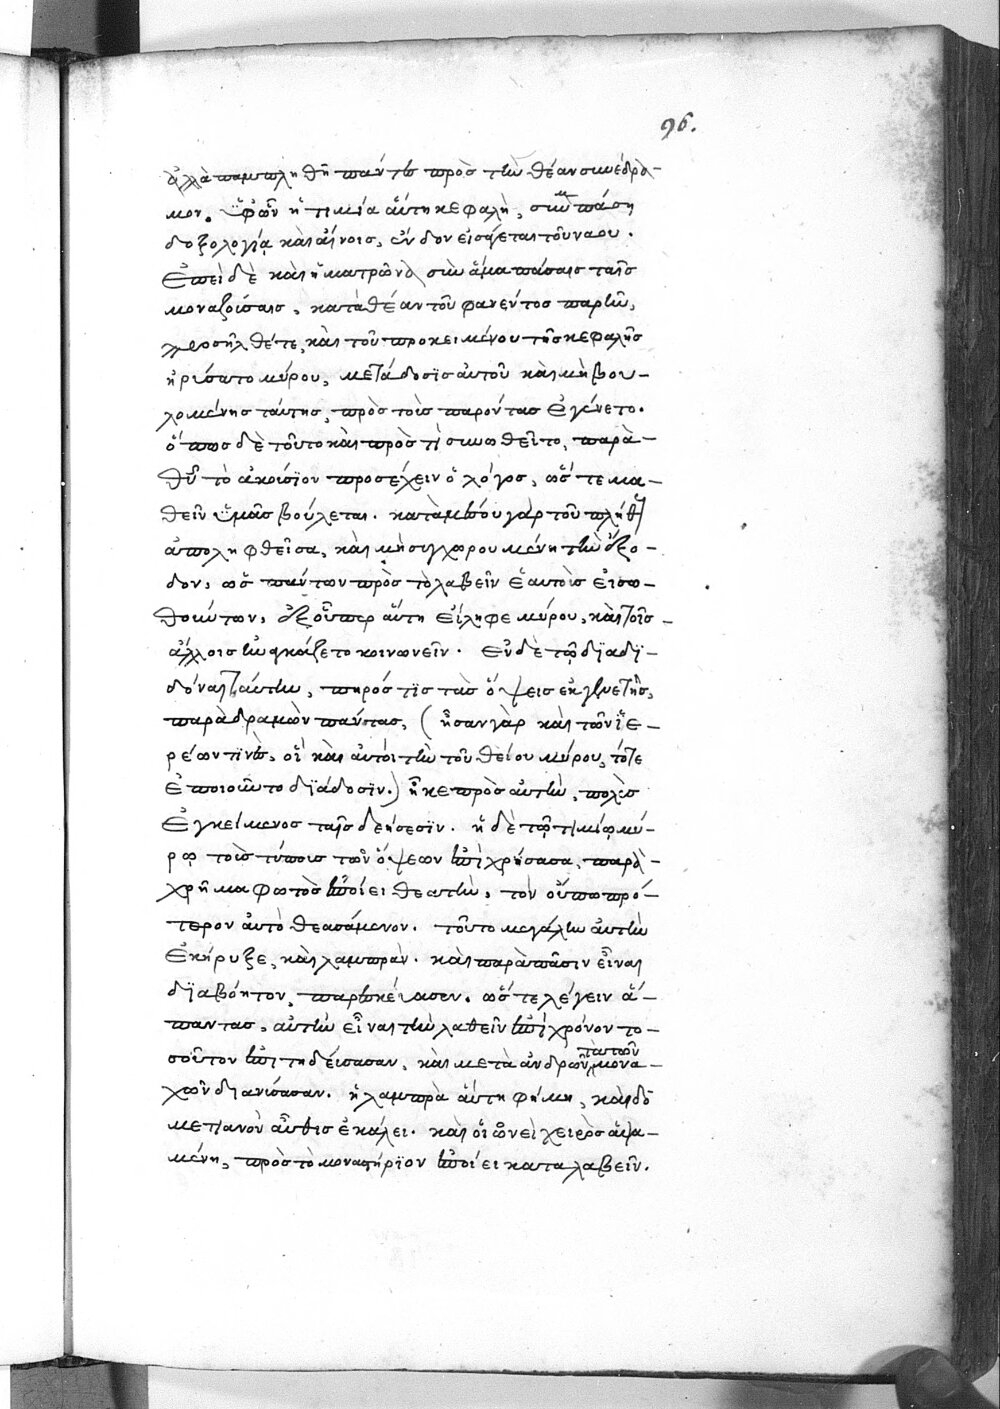 96.
ἀλλὰ παμπληθῆ πάντες πρὸς τὴν θέαν συνέδρα-
μον. ὑφ' ὧν ἡ τιμία αὕτη κεφαλὴ, σὺν πάσῃ
δοξολογίᾳ καὶ αἴνοις, ἔνδον εἰσάγεται τοῦ ναοῦ.
Ἐπεὶ δὲ καὶ ἡ ματρῶνα σὺν ἅμα πάσαις ταῖς
μοναζούσαις, κατὰ θέαν τοῦ φανέντος παρῆν,
προσῆλθέ τε, καὶ τοῦ προκειμένου τῆς κεφαλῆς
ἠρύσατο μύρου, μετάδοσις αὐτοῦ καὶ μὴ βου-
λομένης ταύτης, πρὸς τοὺς παρόντας ἐγένετο.
ὅπως δὲ τοῦτο καὶ πρὸς τί συνωθεῖτο, παρα-
θεῖ τὸ ἀκούσιον προσέχειν ὁ λόγος, ὥς τε μα-
θεῖν ὑμᾶς βούλεται. κατὰ μέσου γὰρ τοῦ πλήθους
ἀποληφθεῖσα, καὶ μὴ συγχωρουμένη τὴν ἔξο-
δον, ὡς πάντων πρὸς τὸ λαβεῖν ἑαυτοὺς εἰσω-
θούντων, ἐξ οὗπερ αὕτη εἴληφε μύρου, καὶ τοῖς
ἄλλοις ἠναγκάζετο κοινωνεῖν. Ἐν δὲ τῷ διαδι-
δόναι ταύτην, πηρός τις τὰς ὄψεις ἐκ γενετῆς,
παραδραμὼν πάντας, (ἦσαν γὰρ καὶ τῶν ἱε-
ρέων τινὲς, οἳ καὶ αὐτοὶ τὴν τοῦ θείου μύρου, τότε
ἐποιοῦντο διάδοσιν.) ἧκε πρὸς αὐτὴν, πολὺς
ἐγκείμενος ταῖς δεήσεσιν. ἡ δὲ τῷ τιμίῳ μύ-
ρῳ τοὺς τύπους τῶν ὄψεων ἐπιχρίσασα, παρα-
χρῆμα φωτὸς ἐποίει θεατὴν, τὸν οὔπω πρό-
τερον αὐτὸ θεασάμενον. τοῦτο μεγάλην αὐτὴν
ἐκήρυξε, καὶ λαμπρὰν. καὶ παρὰ πᾶσιν εἶναι
διαβόητον, παρεσκεύασεν. ὥς τε λέγειν ἅ-
παντας, αὐτὴν εἶναι τὴν λαθεῖν ἐπὶ χρόνον το-
σοῦτον ἐπιτηδεύσασαν, καὶ μετὰ ἀνδρῶν ταυτῶν μονα-
χῶν διανύσασαν. ἡ λαμπρὰ αὕτη φήμη, καὶ δο-
μετιανὸν αὖθις ἐκάλει. καὶ οἱωνεὶ χειρὸς ἁψα-
μένη, πρὸς τὸ μοναστήριον ἐποίει καταλαβεῖν.